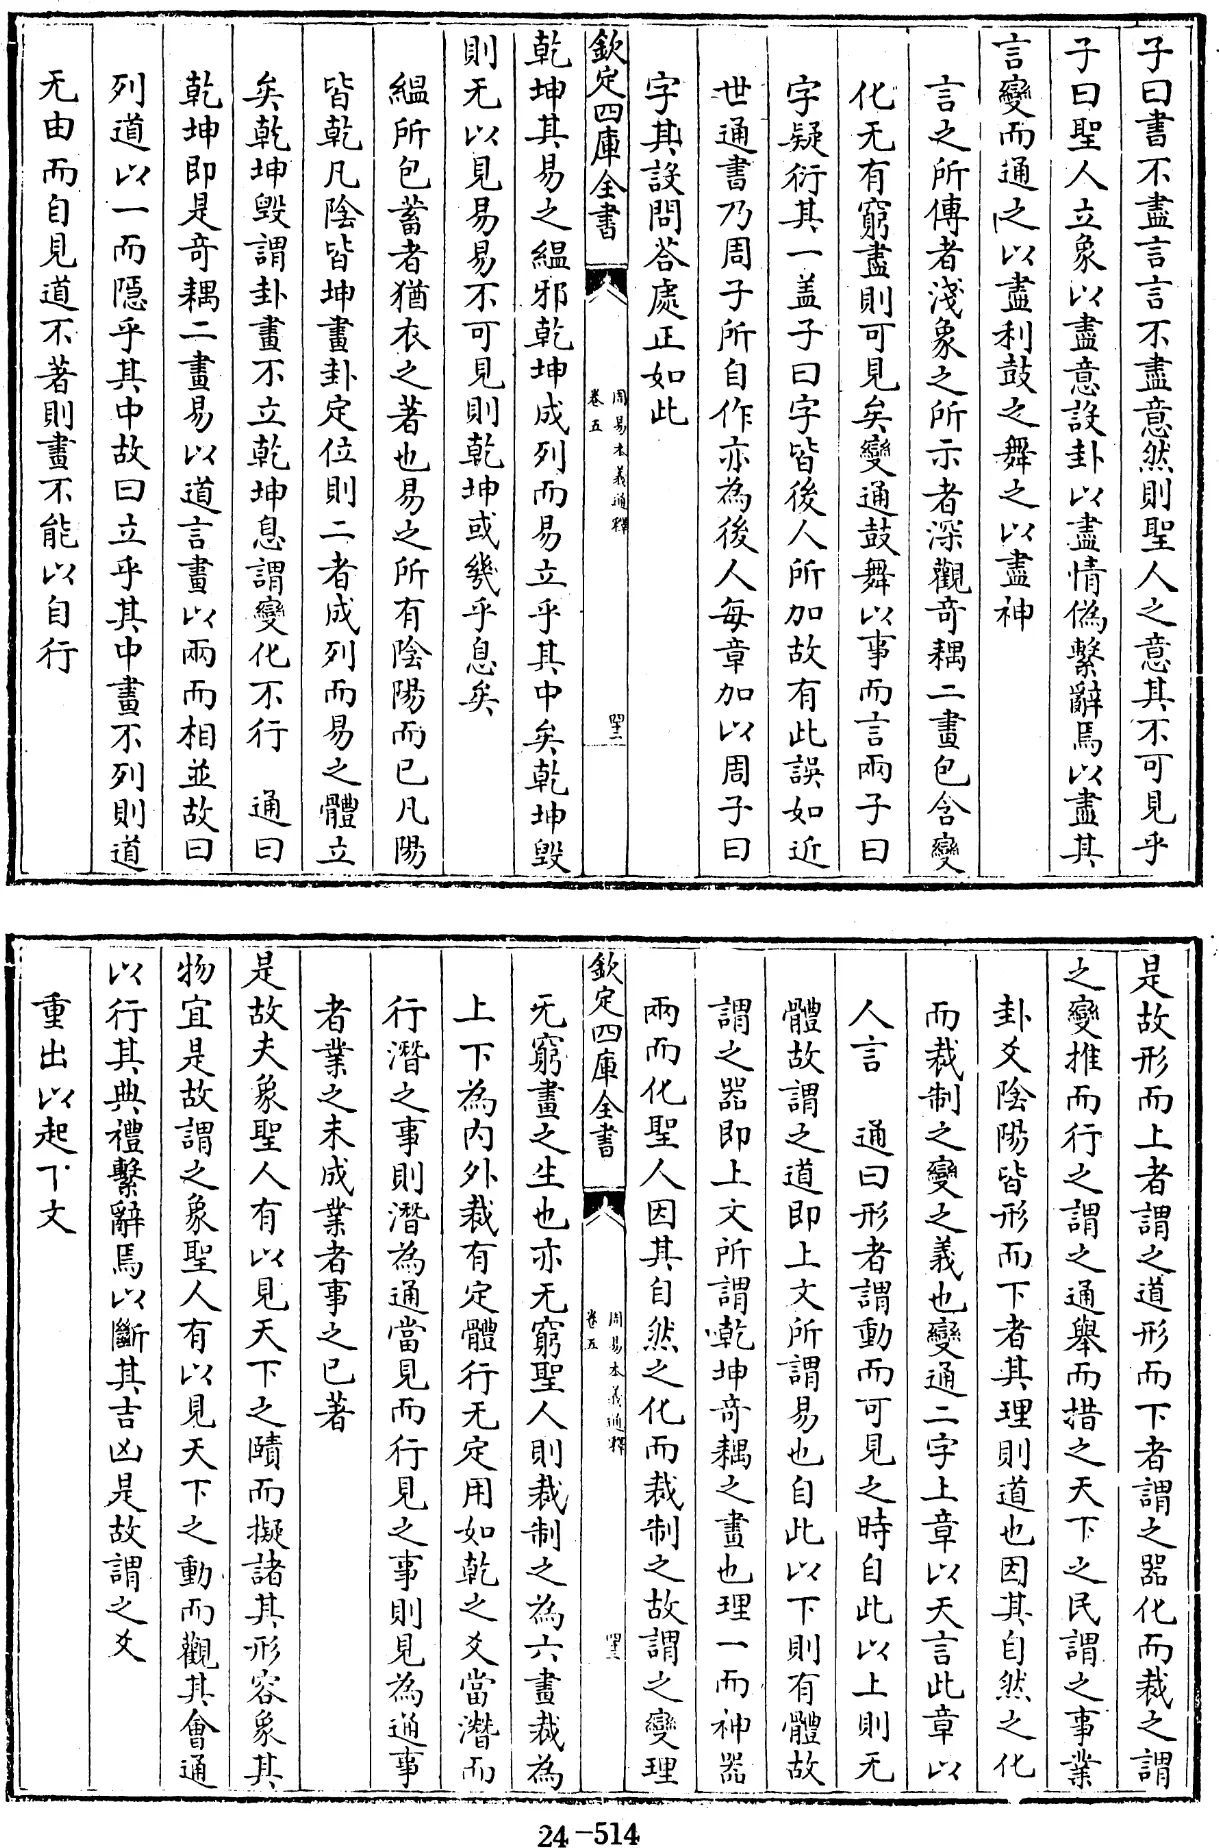 子曰書不盡言言不盡意然則聖人之意其不可見乎
子曰聖人立象以盡意設卦以盡情偽繫辭焉以盡其
言變而通之以盡利鼓之舞之以盡神
言之所傳者淺象之所示者深觀奇耦二畫包含變
化无有窮盡則可見矣變通鼓舞以事而言兩子曰
字疑衍其一蓋子曰字皆後人所加故有此誤如近
世通書乃周子所自作亦為後人每章加以周子曰
字其設問答處正如此
欽定四庫全書
周易本義通釋
卷五
乾坤其易之緼邪乾坤成列而易立乎其中矣乾坤毀
則无以見易易不可見則乾坤或幾乎息矣
緼所包蓄者猶衣之著也易之所有陰陽而已凡陽
皆乾凡陰皆坤畫卦定位則二者成列而易之體立
矣乾坤毀謂卦畫不立乾坤息謂變化不行　通曰
乾坤即是奇耦二畫易以道言畫以兩而相並故曰
列道以一而隱乎其中故曰立乎其中畫不列則道
无由而自見道不著則畫不能以自行
是故形而上者謂之道形而下者謂之器化而裁之謂
之變推而行之謂之通舉而措之天下之民謂之事業
卦爻陰陽皆形而下者其理則道也因其自然之化
而裁制之變之義也變通二字上章以天言此章以
人言　通曰形者謂動而可見之時自此以上則无
體故謂之道即上文所謂易也自此以下則有體故
謂之器即上文所謂乾坤奇耦之畫也理一而神器
兩而化聖人因其自然之化而裁制之故謂之變理
欽定四庫全書
周易本義通釋
卷五
无窮畫之生也亦无窮聖人則裁制之為六畫裁為
上下為內外裁有定體行无定用如乾之爻當潛而
行潛之事則潛為通當見而行見之事則見為通事
者業之未成業者事之已著
是故夫象聖人有以見天下之賾而擬諸其形容象其
物宜是故謂之象聖人有以見天下之動而觀其會通
以行其典禮繫辭焉以斷其吉凶是故謂之爻
重出以起下文
24-514